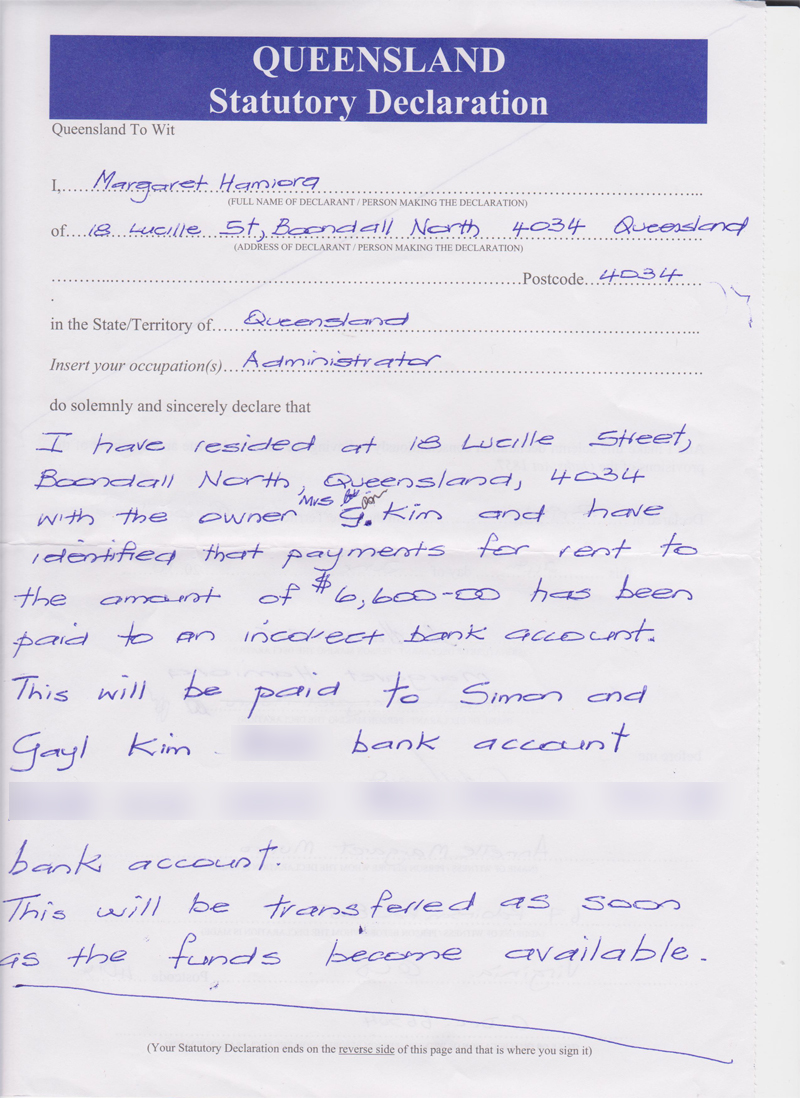 QUEENSLAND
Statutory Declaration
Queensland To Wit
I,.....Margaret Hamiora
(FULL NAME OF DECLARANT / PERSON MAKING THE DECLARATION)
of....18 Lucille St, Boondall North 4034 Queensland
(ADDRESS OF DECLARANT / PERSON MAKING THE DECLARATION)
Postcode...4034
in the State/Territory of....Queensland
Insert your occupation(s)...Administrator
do solemnly and sincerely declare that
I have resided at 18 Lucille Street,
Boondall North, Queensland, 4034
Mrs
with the owner G. Kim and have
identified that payments for rent to
the amount of $6,600-00 has been
paid to an incorect bank account.
This will be paid to Simon and
Gayl Kim bank account
bank account.
This will be transferred as soon
as the funds become available.
(Your Statutory Declaration ends on the reverse side of this page and that is where you sign it)